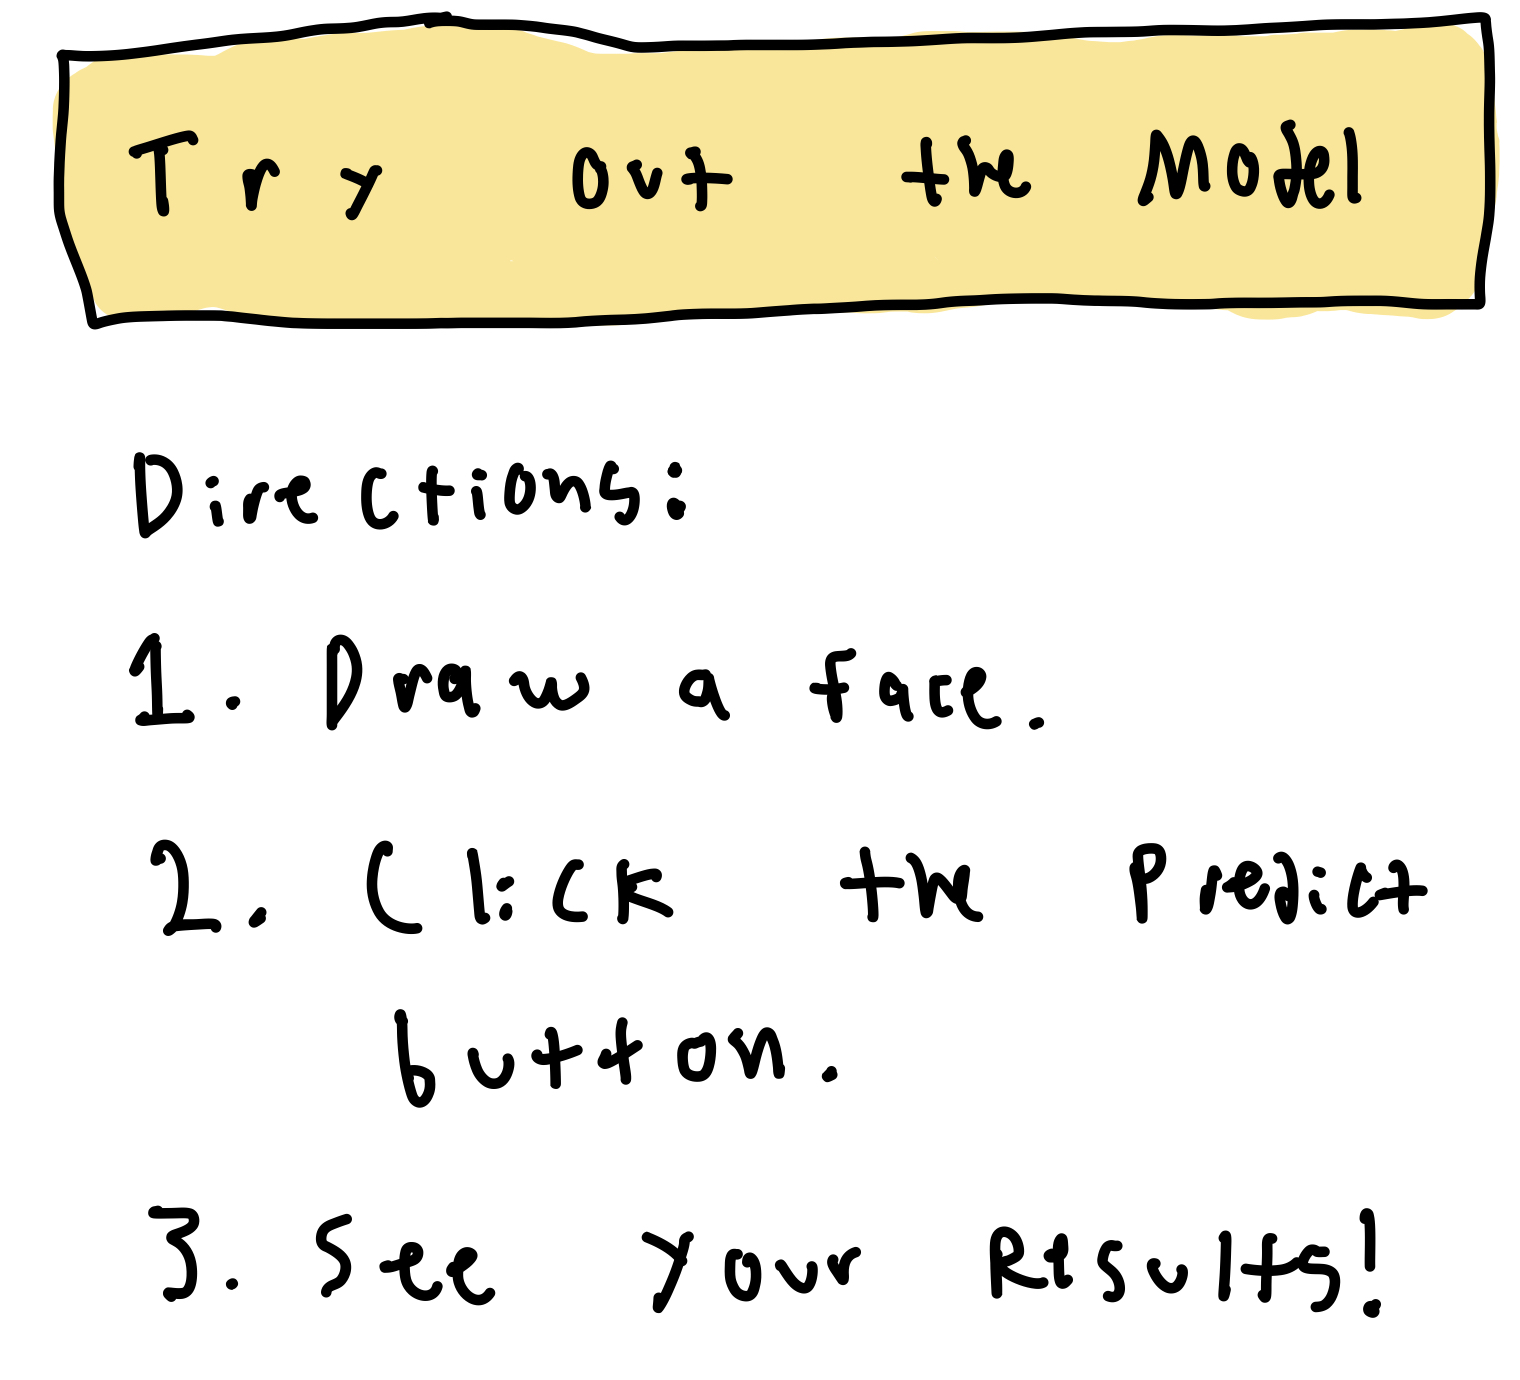 Try out the Model
Directions:
1. Draw a face.
2. Click the Predict
button.
3. See your Results!